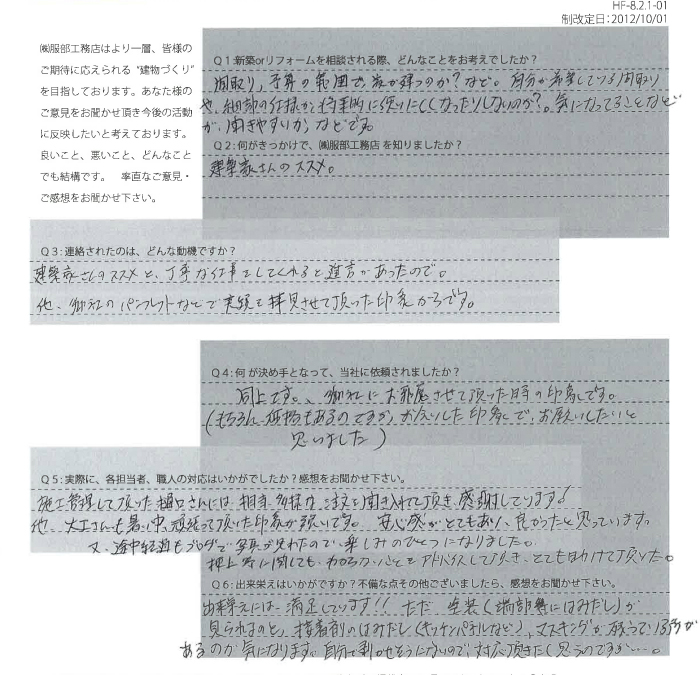 HF-8.2.1-01
制改定日：2012/10/01
㈱服部工務店はより一層、皆様の
ご期待に応えられる “建物づくり”
を目指しております。あなた様の
ご意見をお聞かせ頂き今後の活動
に反映したいと考えております。
良いこと、悪いこと、どんなこと
でも結構です。 率直なご意見・
ご感想をお聞かせ下さい。
Q１:新築orリフォームを相談される際、どんなことをお考えでしたか？
間取り，予算の範囲で、家が建つのか？など。自分が希望している間取り
や、細部の仕様が、将来的に使いにくくなったりしないのか？。気になってることなど
が、聞きやすいか、などです。
Q２:何がきっかけで、㈱服部工務店 を知りましたか？
建築家さんのススメ。
Q３:連絡されたのは、どんな動機ですか？
建築家さんのススメと、丁寧な仕事をしてくれると進言があったので。
他、御社のパンフレットなどで実績を拝見させて頂った印象からです。
Q４:何 が決め手となって、当社に依頼されましたか？
同上です。、御社にお邪魔させて頂った時の印象です。
(もちろん、価格もあるのですが，お会いした印象で、お願いしたいと
思いました)
Q５:実際に、各担当者、職人の対応はいかがでしたか？感想をお聞かせ下さい。
施工管理して頂った樋口さんには、相当、多様な注文を聞き入れて頂き、感謝しています！
他、大工さんも暑い中、頑張って頂った印象が強いです。安心感がとてもあり、良かったと思っています。
又、途中経過もブログで写真が見れたので、楽しみのひとつになりました。
押上 等に関しても、わからないことをアドバイスして頂き、とても助けて頂った。
Q６:出来栄えはいかがですか？不備な点その他ございましたら、感想をお聞かせ下さい。
出来栄えには、満足しています!! ただ、塗装(端部等にはみだし)が
見られるのと、接着剤のはみだし(キッチンパネルなど)、マスキングが残っている所が
あるのが気になります。自分で剥がせそうにないので、対応頂きたく思うのですが…。